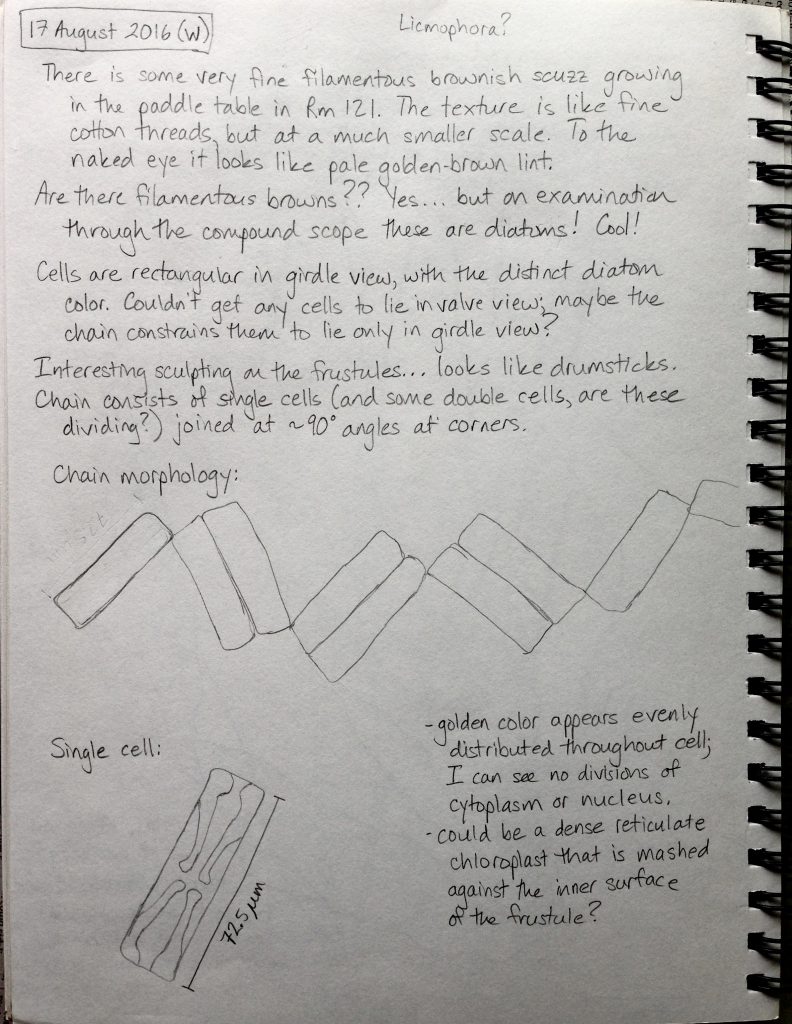 17 August 2016 (W)
Licmophora?
There is some very fine filamentous brownish scuzz growing
in the paddle table in Rm 121. The texture is like fine
cotton threads, but at a much smaller scale. To the
naked eye it looks like pale golden-brown lint.
Are there filamentous browns?? Yes... but on examination
through the compound scope these are diatoms! Cool!
Cells are rectangular in girdle view, with the distinct diatom
color. Couldn't get any cells to lie in valve view; maybe the
chain constrains them to lie only in girdle view?
Interesting sculpting on the frustules... looks like drumsticks.
Chain consists of single cells (and some double cells, are these
dividing?) joined at ~90° angles at corners.
Chain morphology:
Single cell:
72.5 µm
- golden color appears evenly
distributed throughout cell;
I can see no divisions of
cytoplasm or nucleus.
- could be a dense reticulate
chloroplast that is mashed
against the inner surface
of the frustule?